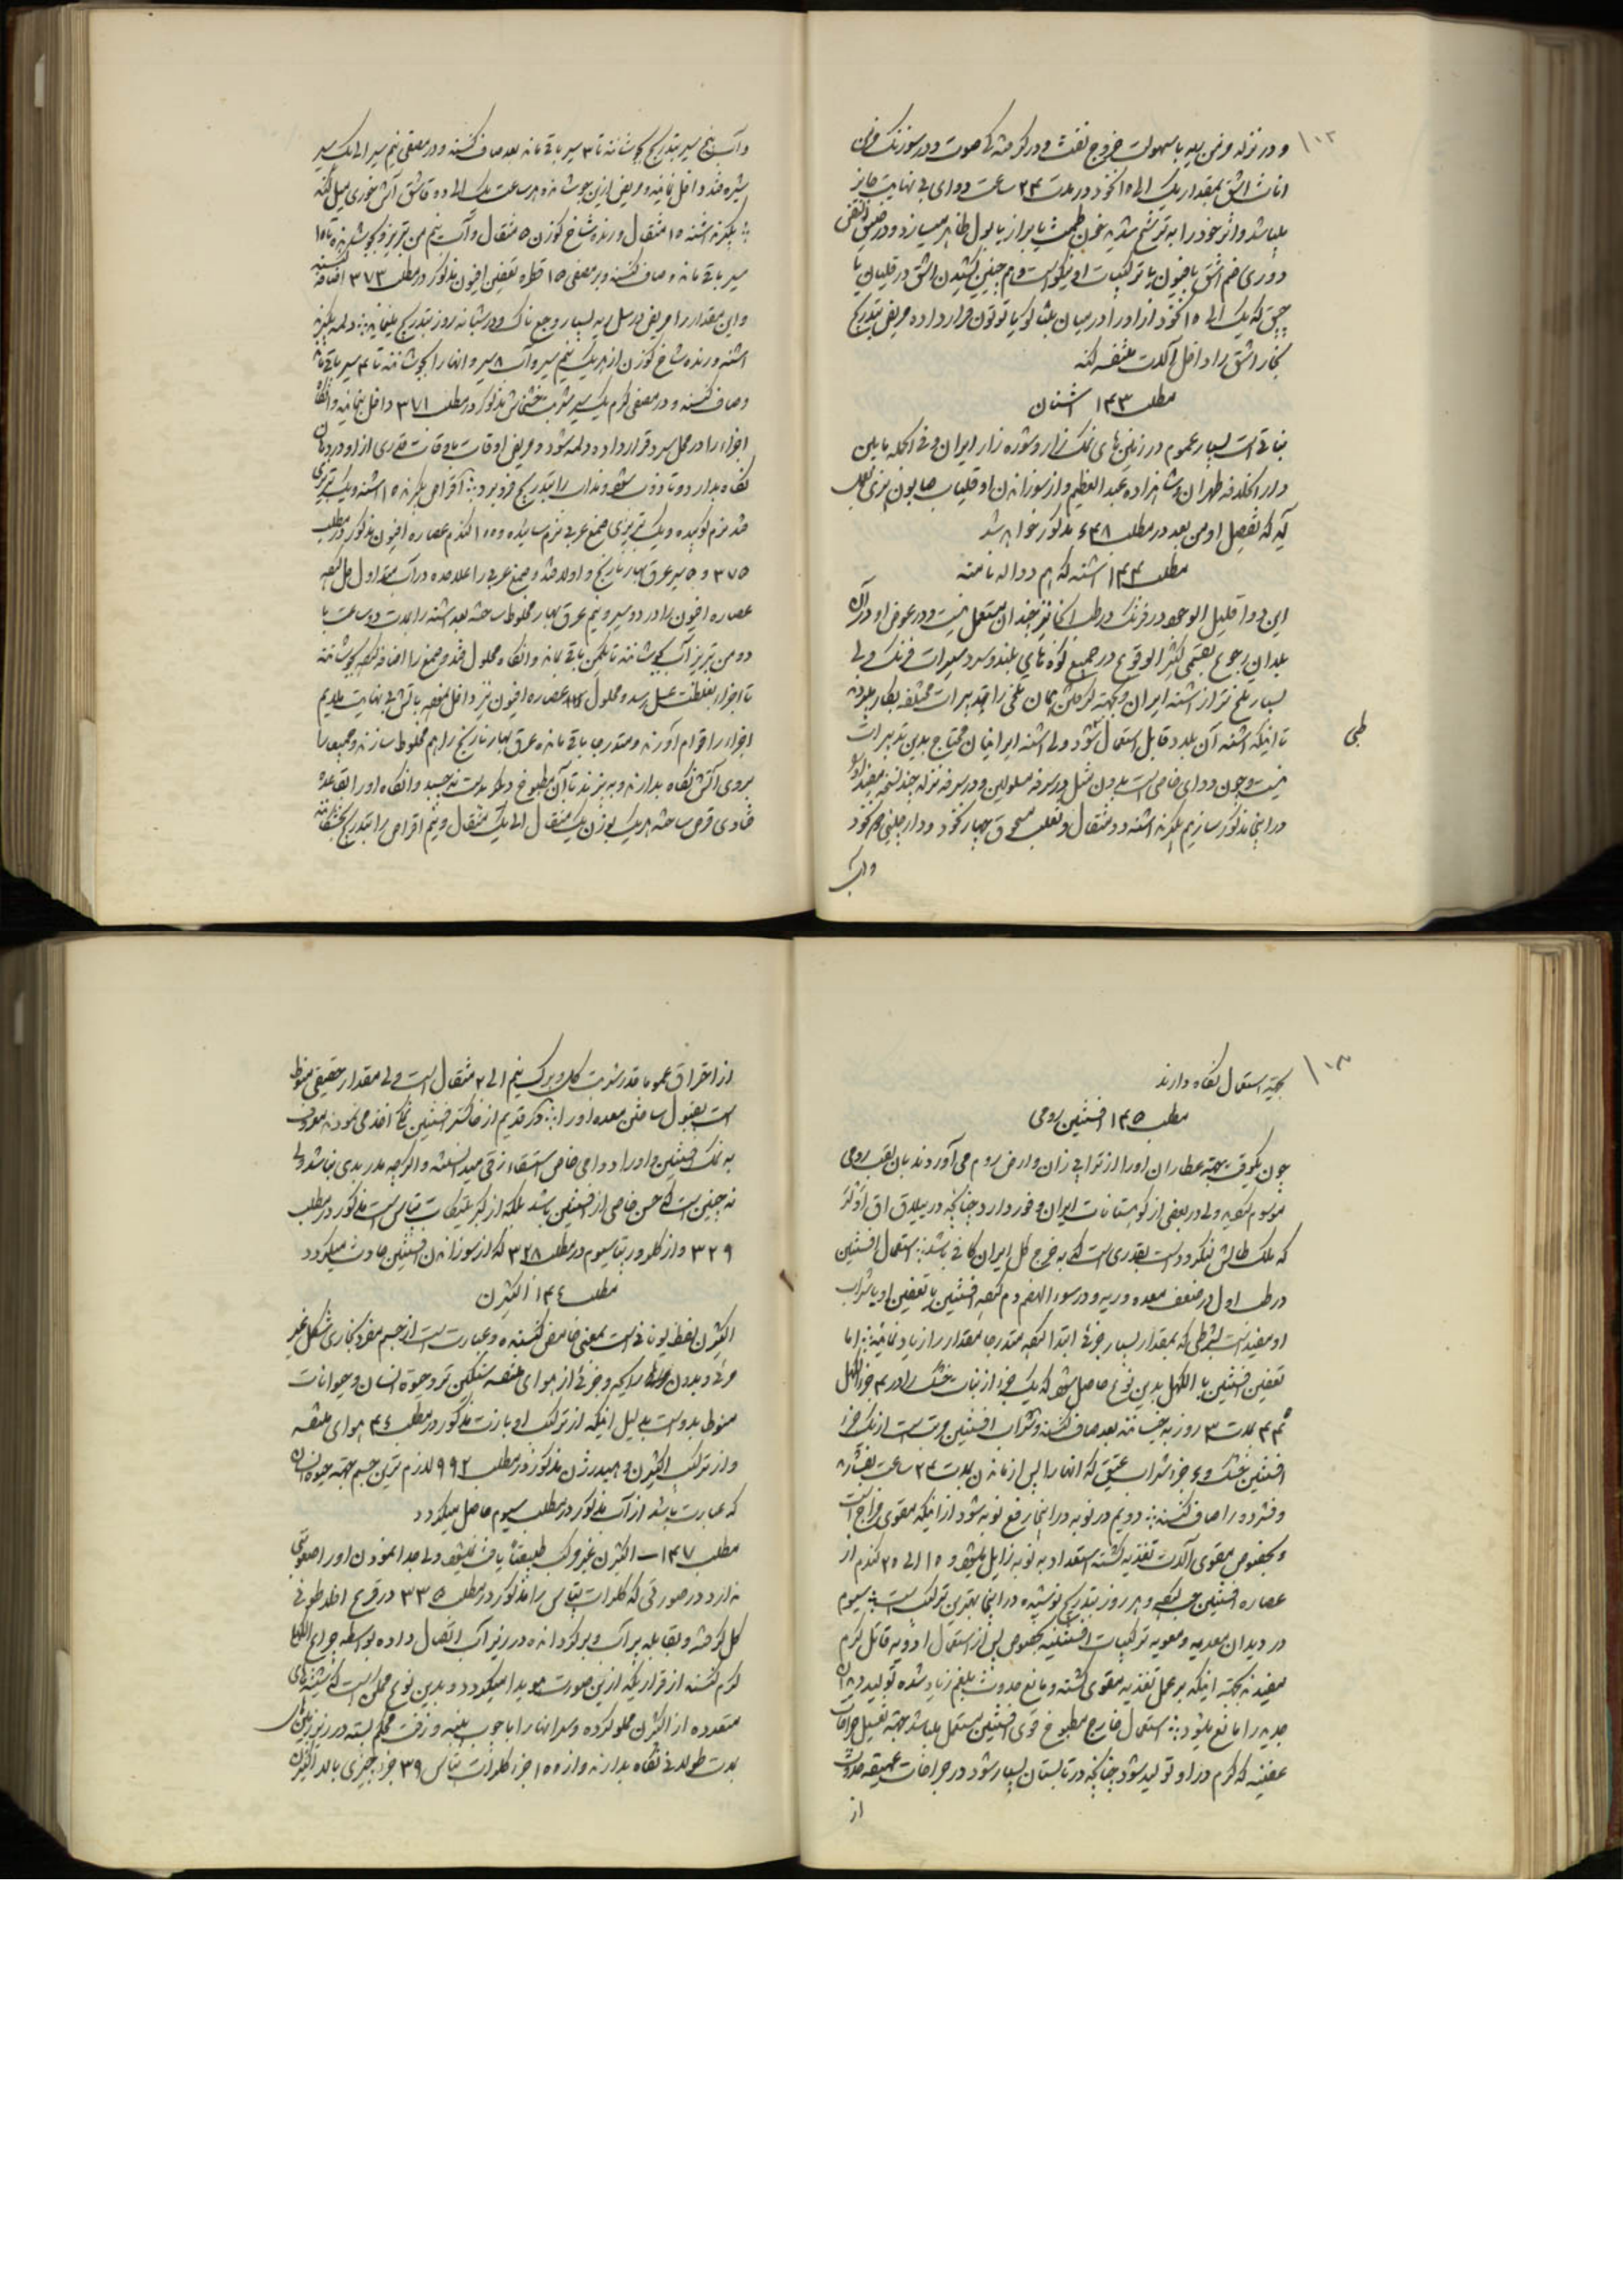 ۱۰۲
و در نزله مزمن ریه با سهولت خروج نفث و در گرفته‌گی صوت و در سوزنک مزمن
اناث اشق بمقدار یک الی ۱۵ نخود در مدت ۲۴ ساعت دوای بی نهایت جایز
میباشد و اثر خود را به ترشح شدید خون طمث یا براز یا بول ظاهر میسازد و در ضیق النفس
دوری ضم اشق با افیون یا ترکیبات او نیکو است و هم چنین کشیدن اشق در قلیان یا
چپق که یک الی ۱۵ نخود از او را در میان تنباکو یا توتون قرار داده مریض بتدریج
بخار اشق را داخل آلات متنفسه کند
مطلب ۱۴۳ اشنان
نباتی است بسیار عموم در زمین‌های نمک زار و شوره زار ایران و فی الجمله مابین
دار الخلافه طهران و شاهزاده عبد العظیم و از سوزاندن او قلیاب صابون پزی بعمل
آید که تفصیل او من بعد در مطلب ۶۴۸ مذکور خواهد شد
مطلب ۱۴۴ اشنه که هم دواله نامند
این دوا قلیل الوجود در فرنگ و در طب آنجا نیز چندان مستعمل نیست و در عوض او در آن
بلدان رجوع بقسمی کثیر الوقوع در جمیع کوه‌های بلند و سردسیرات فرنگ ولی
بسیار تلخ‌تر از اشنه ایران و بجهته گرفتن همان تلخی را تدبیرات مختلفه بکار برده
تا اینکه اشنه آن بلاد قابل استعمال شود ولی اشنه ایرانیان محتاج بدین تدبیرات
طبی
نیست و چون دوای خاصی است بدون مثل در سرفه مسلولین و در سرفه نزله چند نسخه مفید او را
در اینجا مذکور سازیم بگیرند اشنه دو مثقال و ثعلب مسحوق چهار نخود و دارچینی ۶ نخود
و آب
و آب پنج سیر بتدریج جوشانند تا ۳ سیر باقی ماند بعد صاف کنند و در مصفی نیم سیر الی یک سیر
شیره قند داخل نمایند و مریض ازین جوشانده هر ساعت یک الی دو قاشق آش خوری میل کند
بگیرند اشنه ۱۵ مثقال و رنده شاخ گوزن ۵ مثقال و آب نیم من تبریز و بجوشانند تا ۱۵
سیر باقی ماند و صاف کنند و بر مصفی ۱۵ قطره تعفین افیون مذکور در مطلب ۳۷۳ اضافه کنند
و این مقدار را مریض در سل ریه بسیار وجع ناک و در شبانه روز بتدریج مینماید دلمه بگیرند
اشنه و رنده شاخ گوزن از هر یک نیم سیر و آب ۸ سیر و آنها را بجوشانند تا ۴ سیر باقی ماند
و صاف کنند و در مصفی گرم یک سیر شربت خشخاش مذکور در مطلب ۳۷۱ داخل نمایند و آنگاه
اجزاء را در محل سرد قرار داده دلمه شود و مریض اوقات باوقات قدری از او در دهان
نگاه بدارد و تا ذوب شود و مذاب را بتدریج فرو برد اقراص بگیرند ۱۵ اشنه و یک تبریزی
قند نرم کوبیده و یک تبریزی صمغ عربی نرم سائیده و ۱۰۰ گندم عصاره افیون مذکور در مطلب
۳۷۵ و ۵ سیر عرق بهار نارنج و اولا قند و صمغ عربی را علاحده در آب متداول حل کنند
عصاره افیون را در دو سیر و نیم عرق بهار مخلوط ساخته بعد اشنه را بمدت دو ساعت با
دو من تبریز آب بجوشانند تا یکمن باقی ماند و آنگاه محلول قند و صمغ را اضافه نموده بجوشانند
تا اجزاء بغلظت عسل رسد و محلول عصاره افیون نیز داخل نموده باتش بی نهایت ملایم
اجزاء را قوام آورند و متدرجا باقی مانده عرق بهار نارنج را هم مخلوط سازند و جمیع را
بروی آتش نگاه بدارند و به پزند تا آن مطبوخ دیگر بدست نه چسبد و آنگاه او را بقاعده
قنادی قرص ساخته هر یک بوزن یک مثقال الی یک مثقال و نیم اقراص را بتدریج خشکانند
۱۰۳
بجهته استعمال نگاه دارند
مطلب ۱۴۵ افسنتین رومی
چون یکوقت بجهته عطاران او را از ترابی زان و ارض روم می آوردند بان لقب رومی
موسوم گردید ولی در بعضی از کوهستانات ایران وفور دارد چنانچه در ییلاق اق اولر
که ملک طالش لنکرود است بقدری است که به خرج کل ایران کافی باشد استعمال افسنتین
در طب اول در ضعف معده و ریه و در سوء الهضم دم کرده افسنتین یا تعفین او یا شراب
او مفید است بشرطی که بمقدار بسیار جزئی ابتدا کرده متدرجا مقدار را زیاد نمایند اما
تعفین افسنتین با الکهل بدین نوع حاصل میشود که یک جزء از نبات خشک را در ۴ جزء الکهل
۳۴ مدت ۳ روز به خیسانند بعد صاف کنند و شراب افسنتین مرتب است از یک جزء
افسنتین خشک و ۶ جزء شراب عتیق که آنها را پس از ماندن بمدت ۲۴ ساعت بفشارند
و فشرده را صاف کنند دویم در نوبه در اینجا رفع نوبه شود از اینکه مقوی مزاج است
و بخصوص مقوی آلات تغذیه گشته استعداد به نوبه زایل میشود و ۱۵ الی ۲۵ گندم از
عصاره افسنتین حب کرده و هر روز بتدریج نوشیدن در اینجا بهترین ترکیب است سیوم
در دیدان معدیه و معویه ترکیبات افسنتینیه بخصوص پس از استعمال ادویه قاتل کرم
مفیدند بجهته اینکه بر عمل تغذیه مقوی گشته و مانع حدوث بلغم زیاد شده تولید دیدان
جدید را مانع میشود استعمال خارج مطبوخ قوی افسنتین مستعمل میباشد بجهته تغسیل جراحات
عفینه که کرم در او تولید شود چنانچه در تابستان بسیار شود در جراحات عمیقه حدوث
از
از احراق عموما قدر شربت گل و برگ نیم الی ۲ مثقال است ولی مقدار حقیقی منوط
است بقبول ساختن معده او را ذکر قدیم از خاکستر افسنتین نمکی اخذ می نمودند معروف
به نمک افسنتین و او را دوای خاص استسقاء زقی میدانستند و اگرچه مدر بدی نباشد ولی
نه چنین است که حسن خاصی از افسنتین باشد بلکه از کبریتیات پتاس است مذکور در مطلب
۳۲۹ و از کلورور پتاسیوم در مطلب ۳۲۸ که از سوزاندن افسنتین حادث میگردد
مطلب ۱۴۶ اکثیژن
اکثیژن لفظ یونانی است بمعنی حامض کننده و عبارت است از جسم مفرد بخاری شکل غیر
مرئی و بدون رایحه و جزئی از هوای متنفسه سنگین تر و حیوة انسان و حیوانات
منوط بدوست بدلیل اینکه از ترکیب او با ازت مذکور در مطلب ۴۶ هوای متنفسه
و از ترکیب اکثیژن و هیدرژن مذکور در مطلب ۹۹۲ لازم ترین جسم بجهته حیوة انسان
که عبارت باشد از آب مذکور در مطلب سیوم حاصل میگردد
مطلب ۱۴۷ اکثیژن غیر مرکب طبیعتاً یافت نمیشود ولی جدا نمودن او را صعوبتی
ندارد در صورتی که کلرات پتاس را مذکور در مطلب ۳۳۵ در قرع افلاطونی
گل گرفته و بقابله پر آب و برگردانده در زیر آب اتصال داده بواسطه چراغ الکهل
گرم کنند از قراریکه ازین صورت هویدا میگردد و بدین نوع ممکن است که شیشه‌های
متعدده از اکثیژن مملو کرده و سر آنها را با چوب پنبه و زفت محکم بسته در زیر زمین
بمدت طولانی نگاه بدارند و از ۱۰۰ جزء کلرات پتاس ۳۹ جزء چیزی بالا اکثیژن